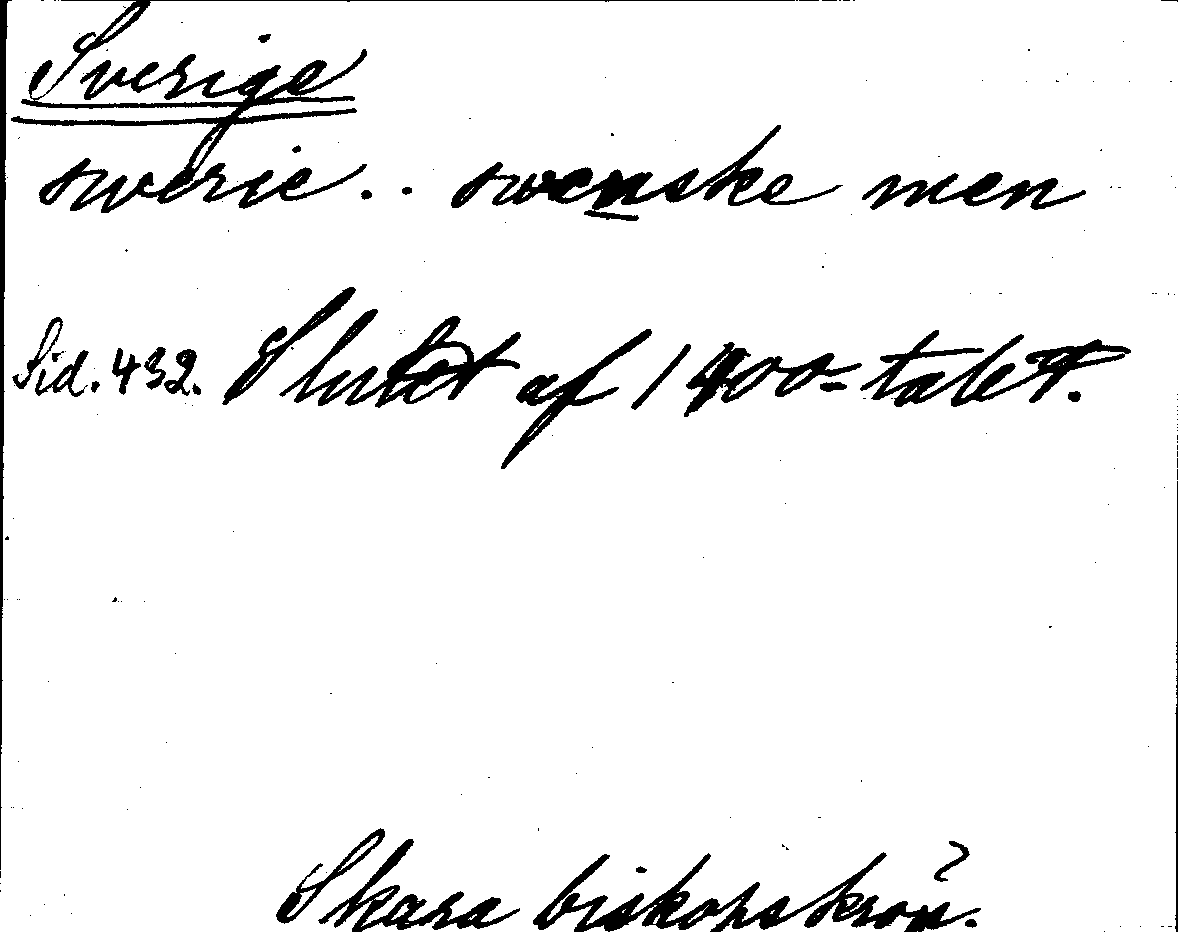 Sverige
swerie.. swenske men
Sid. 432. Slutet af 1400-talet.
Skara biskopskrön.